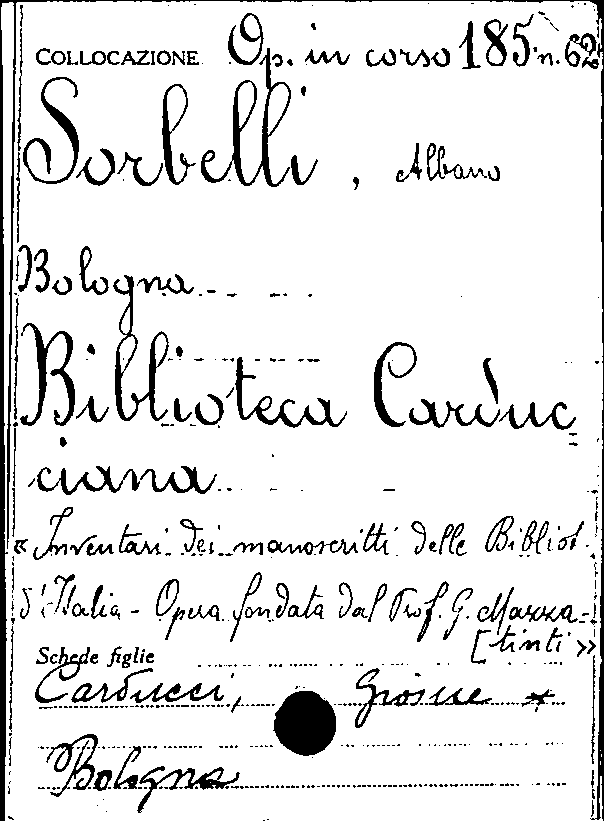 COLLOCAZIONE Op. in corso 185 n. 62
Sorbelli, Albano
Bologna
Biblioteca Carduc=
ciana
«Inventari dei manoscritti delle Bibliot.
d'Italia - Opera fondata dal Prof. G. Mazza=
[tinti»
Schede figlie
Carducci, Giosue *
Bologna